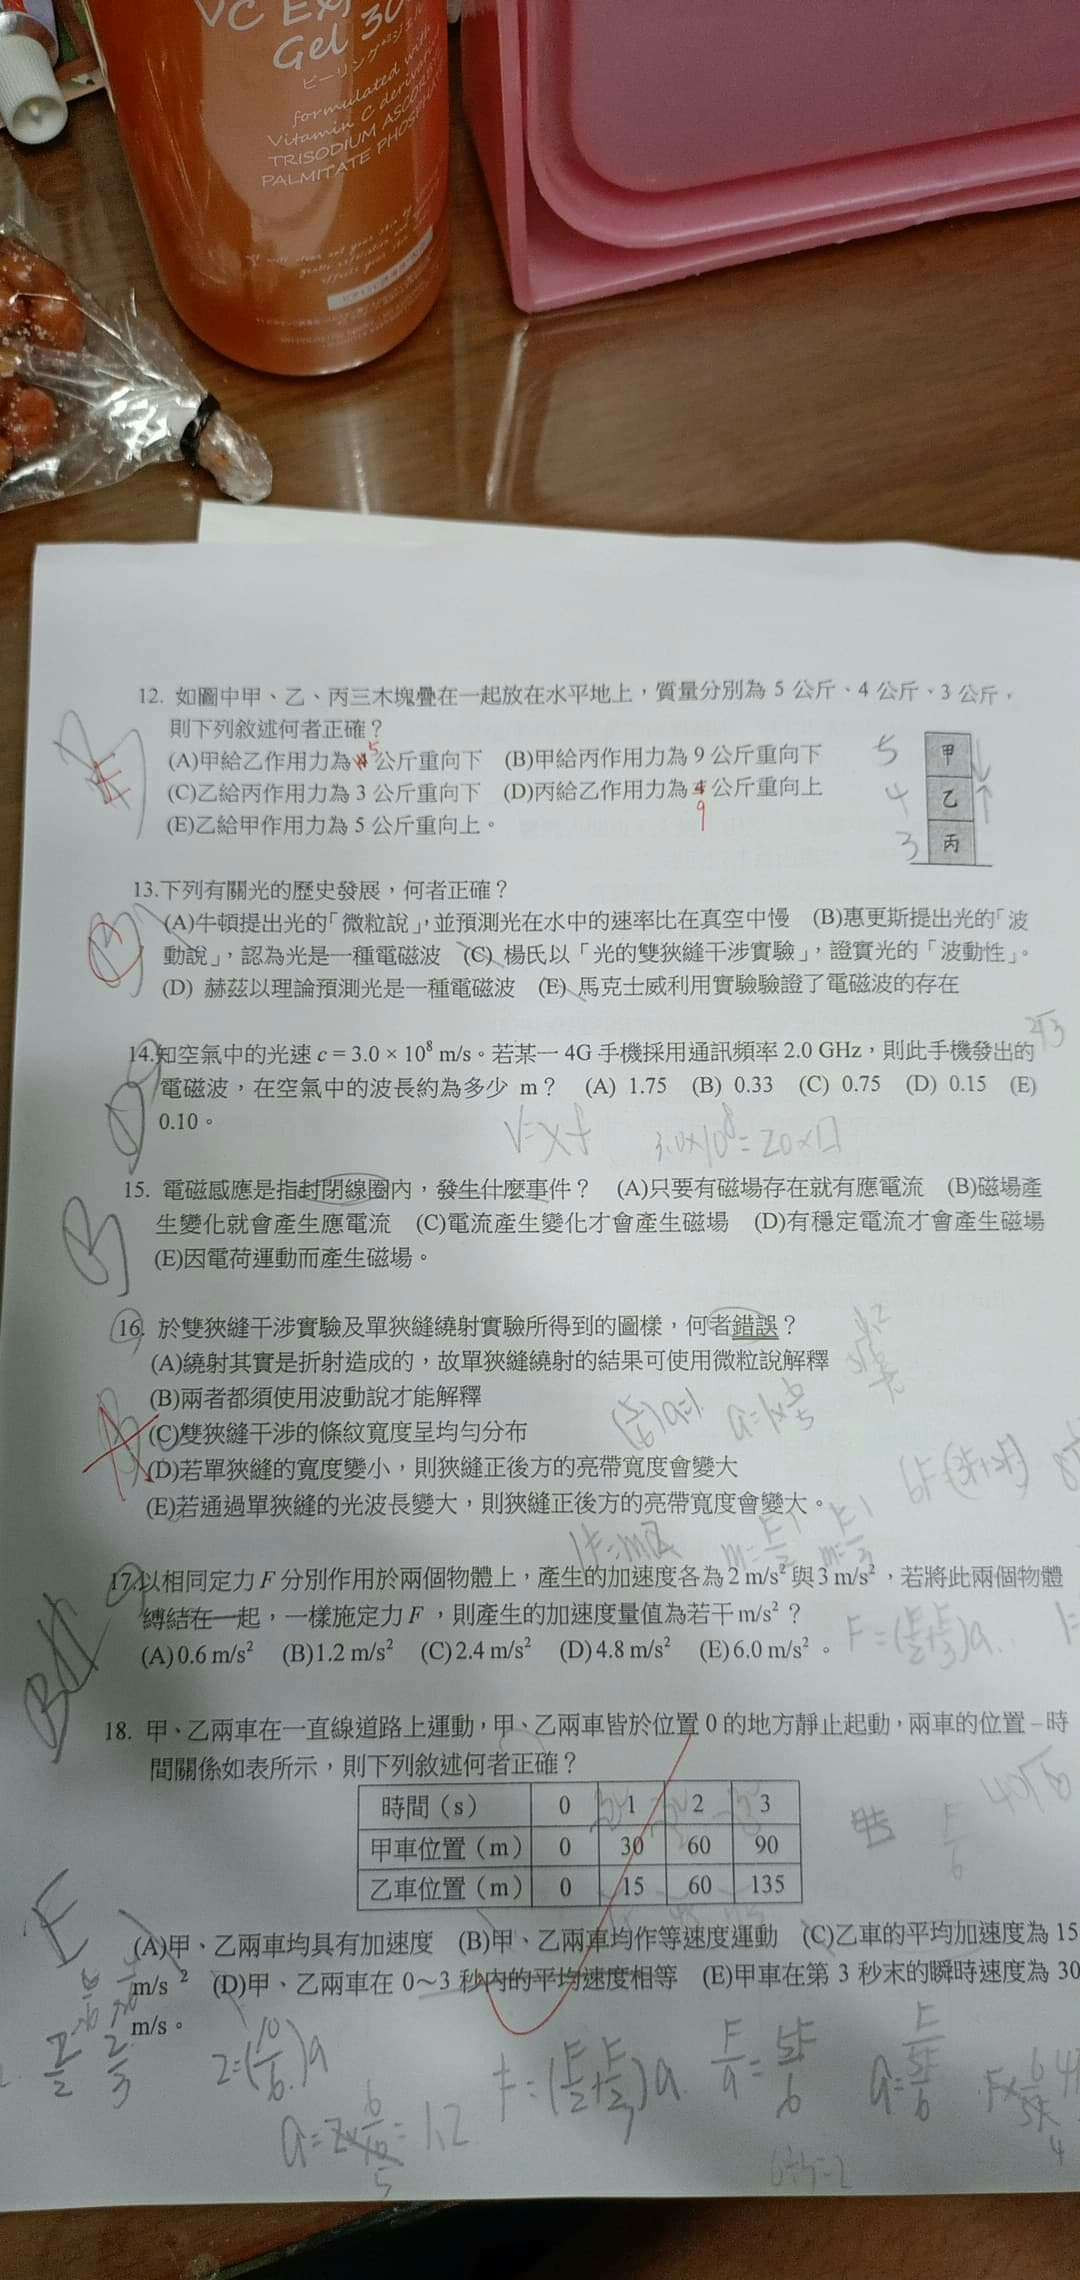 VC Ex
Gel 30
formulated with
Vitamin C deriva
TRISODIUM ASCORB
PALMITATE PHOSPH
12. 如圖中甲、乙、丙三木塊疊在一起放在水平地上，質量分別為 5 公斤、4 公斤、3 公斤，
則下列敘述何者正確？
(A)甲給乙作用力為 5 公斤重向下 (B)甲給丙作用力為 9 公斤重向下
(C)乙給丙作用力為 3 公斤重向下 (D)丙給乙作用力為 4 公斤重向上
9
(E)乙給甲作用力為 5 公斤重向上。
E
5 甲
4 乙
3 丙
13.下列有關光的歷史發展，何者正確？
(A)牛頓提出光的「微粒說」，並預測光在水中的速率比在真空中慢 (B)惠更斯提出光的「波
動說」，認為光是一種電磁波 (C) 楊氏以「光的雙狹縫干涉實驗」，證實光的「波動性」。
(D) 赫茲以理論預測光是一種電磁波 (E) 馬克士威利用實驗驗證了電磁波的存在
14.知空氣中的光速 c = 3.0 × 10⁸ m/s。若某一 4G 手機採用通訊頻率 2.0 GHz，則此手機發出的
電磁波，在空氣中的波長約為多少 m？ (A) 1.75 (B) 0.33 (C) 0.75 (D) 0.15 (E)
0.10。
D
15. 電磁感應是指封閉線圈內，發生什麼事件？ (A)只要有磁場存在就有應電流 (B)磁場產
生變化就會產生應電流 (C)電流產生變化才會產生磁場 (D)有穩定電流才會產生磁場
(E)因電荷運動而產生磁場。
B
16. 於雙狹縫干涉實驗及單狹縫繞射實驗所得到的圖樣，何者錯誤？
(A)繞射其實是折射造成的，故單狹縫繞射的結果可使用微粒說解釋
(B)兩者都須使用波動說才能解釋
(C)雙狹縫干涉的條紋寬度呈均勻分布
(D)若單狹縫的寬度變小，則狹縫正後方的亮帶寬度會變大
(E)若通過單狹縫的光波長變大，則狹縫正後方的亮帶寬度會變大。
17.以相同定力 F 分別作用於兩個物體上，產生的加速度各為 2 m/s² 與 3 m/s²，若將此兩個物體
縛結在一起，一樣施定力 F，則產生的加速度量值為若干 m/s²？
(A) 0.6 m/s² (B) 1.2 m/s² (C) 2.4 m/s² (D) 4.8 m/s² (E) 6.0 m/s²。
18. 甲、乙兩車在一直線道路上運動，甲、乙兩車皆於位置 0 的地方靜止起動，兩車的位置－時
間關係如表所示，則下列敘述何者正確？
時間（s） 0 1 2 3
甲車位置（m） 0 30 60 90
乙車位置（m） 0 15 60 135
(A)甲、乙兩車均具有加速度 (B)甲、乙兩車均作等速度運動 (C)乙車的平均加速度為 15
m/s² (D)甲、乙兩車在 0～3 秒內的平均速度相等 (E)甲車在第 3 秒末的瞬時速度為 30
m/s。
E